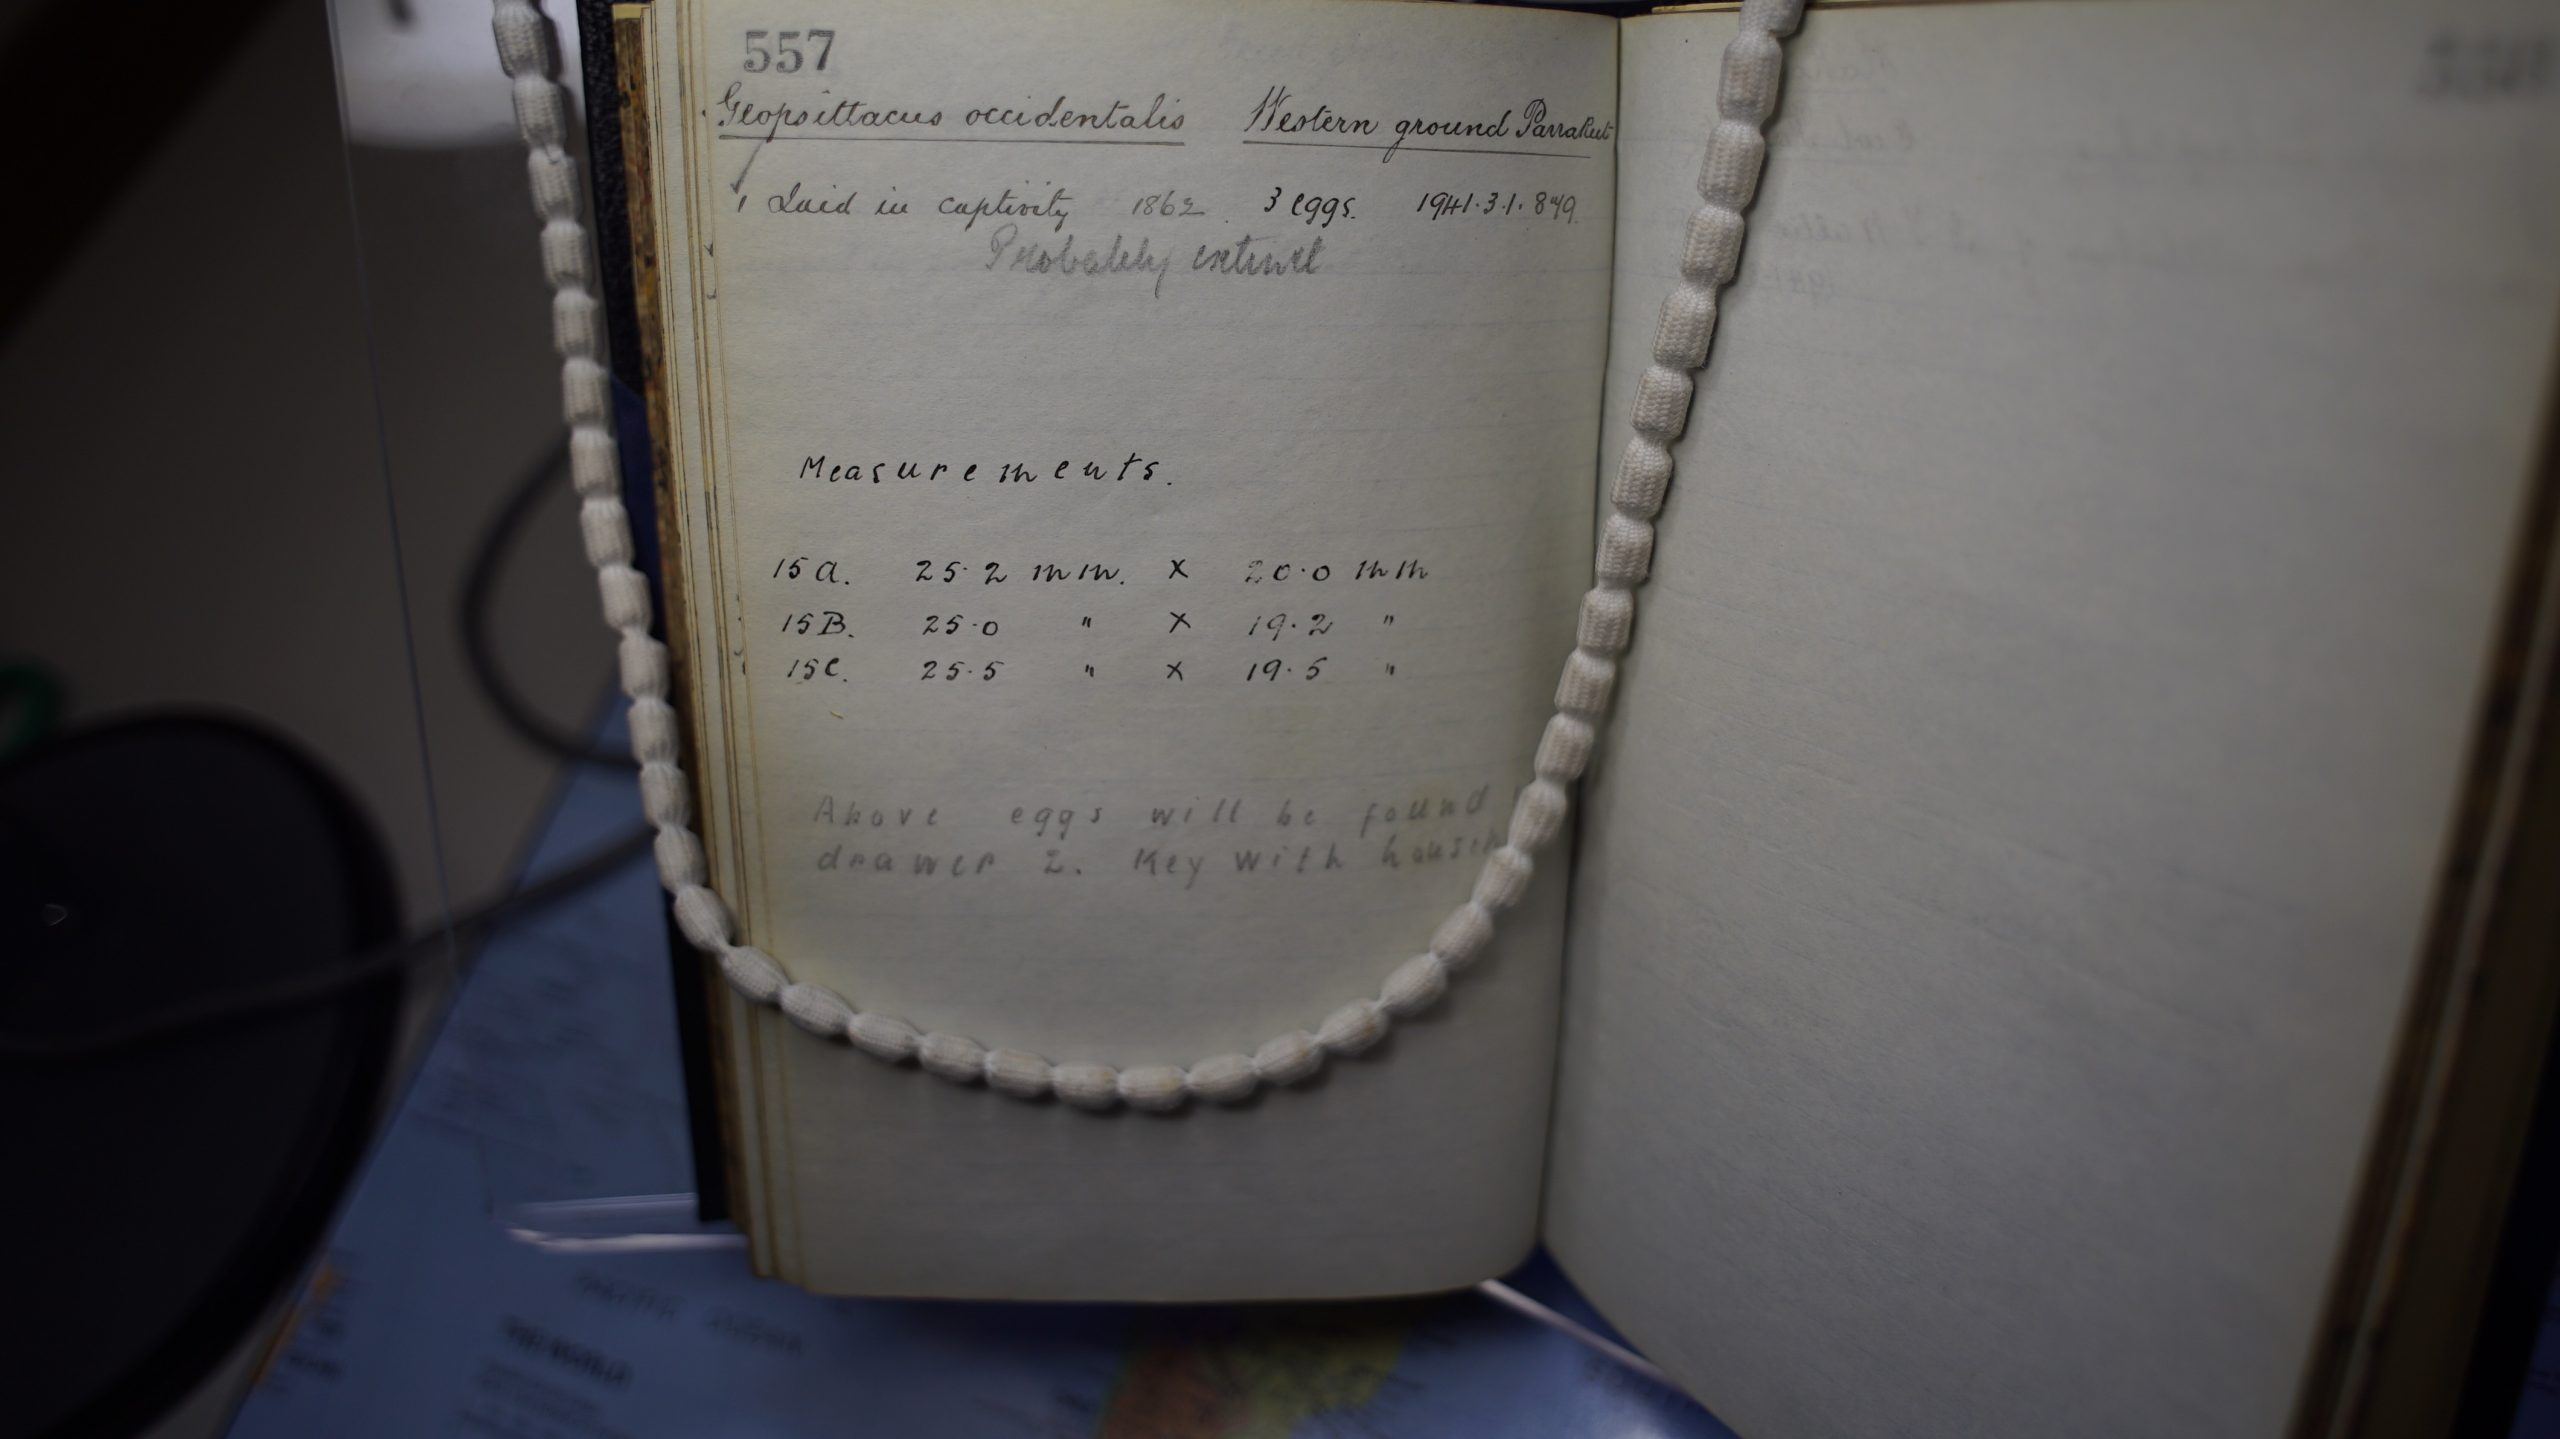 557
Geopsittacus occidentalis Western ground Parrakeet
1 Laid in captivity 1862. 3 eggs. 1941.3.1.849.
Probably extinct
Measurements.
15A. 25·2 mm. × 20·0 mm
15B. 25·0 " × 19·2 "
15C. 25·5 " × 19·5 "
Above eggs will be found
drawer 2. Key with